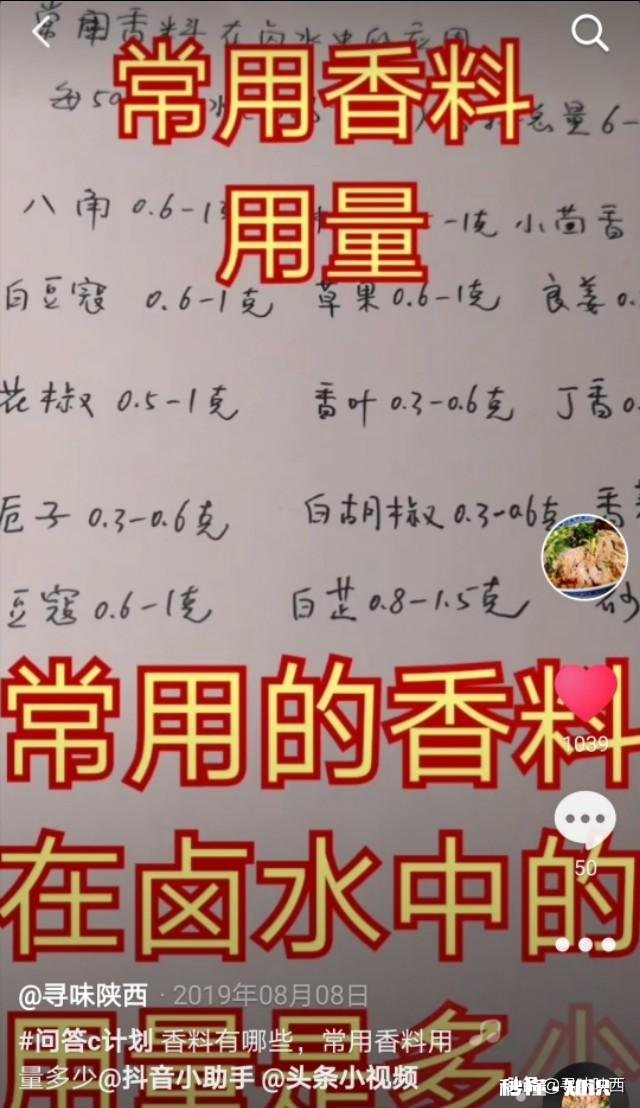 常用香料在卤水中的应用
常用香料
每50
总量6-
用量
八角 0.6-1克
-1克 小茴香
白豆寇 0.6-1克 草果 0.6-1克 良姜 0.
花椒 0.5-1克 香叶 0.3-0.6克 丁香 0.
卮子 0.3-0.6克 白胡椒 0.3-0.6克 香
豆寇 0.6-1克 白芷 0.8-1.5克 砂
常用的香料
1039
在卤水中的
50
@寻味陕西 · 2019年08月08日
用量是多少
#问答c计划 香料有哪些，常用香料用
量多少@抖音小助手 @头条小视频
@寻味陕西
秒懂 知识